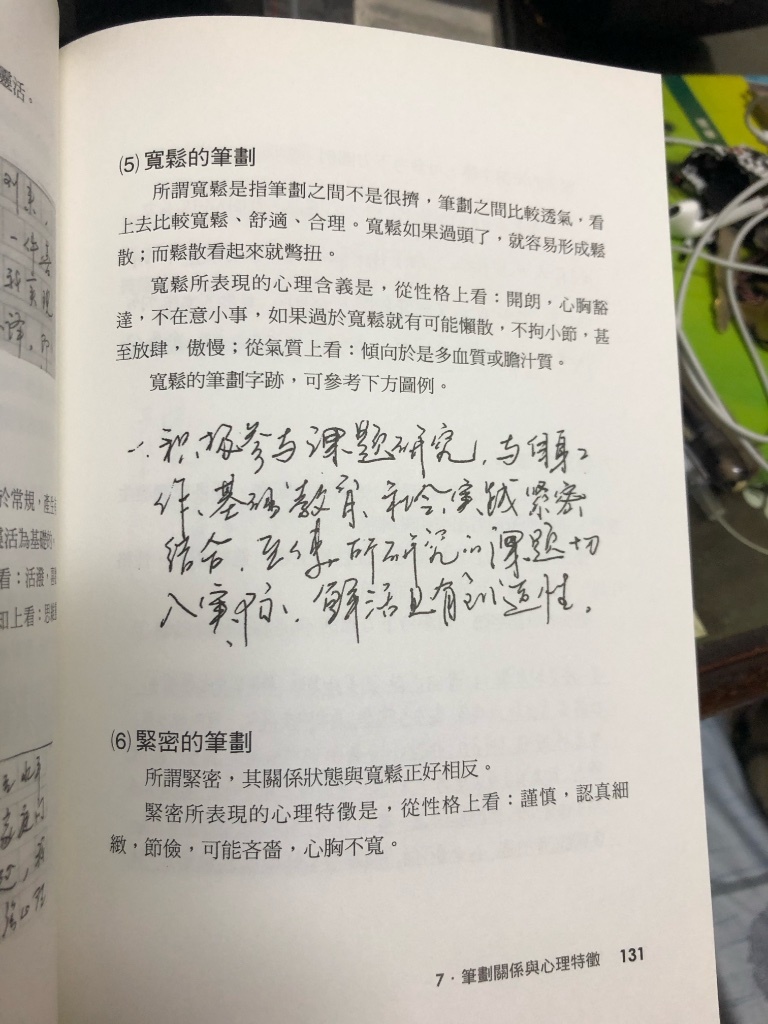 靈活。
⑸寬鬆的筆劃
所謂寬鬆是指筆劃之間不是很擠，筆劃之間比較透氣，看
上去比較寬鬆、舒適、合理。寬鬆如果過頭了，就容易形成鬆
散；而鬆散看起來就彆扭。
寬鬆所表現的心理含義是，從性格上看：開朗，心胸豁
達，不在意小事，如果過於寬鬆就有可能懶散，不拘小節，甚
至放肆，傲慢；從氣質上看：傾向於是多血質或膽汁質。
寬鬆的筆劃字跡，可參考下方圖例。
一、积极参与课题研究，与自身工
作、基础教育、社会实践紧密
结合，所研究的课题切
入实际，鲜活且有创造性。
於常規，產生
靈活為基礎的
看：活潑，
知上看：思維
⑹緊密的筆劃
所謂緊密，其關係狀態與寬鬆正好相反。
緊密所表現的心理特徵是，從性格上看：謹慎，認真細
緻，節儉，可能吝嗇，心胸不寬。
7．筆劃關係與心理特徵 131